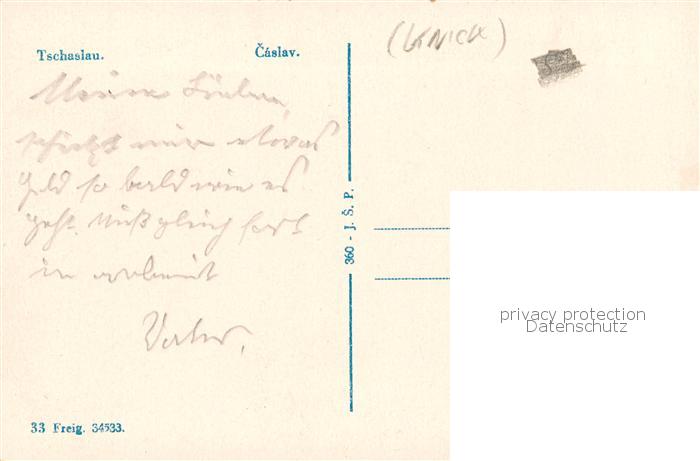 Tschaslau. Čáslav.
(KNICK)
Meine Lieben,
schickt mir etwas
Geld so bald wie es
geht. Muß gleich fort
in
Vater.
360 - J. Š. P.
privacy protection
Datenschutz
33 Freig. 34533.